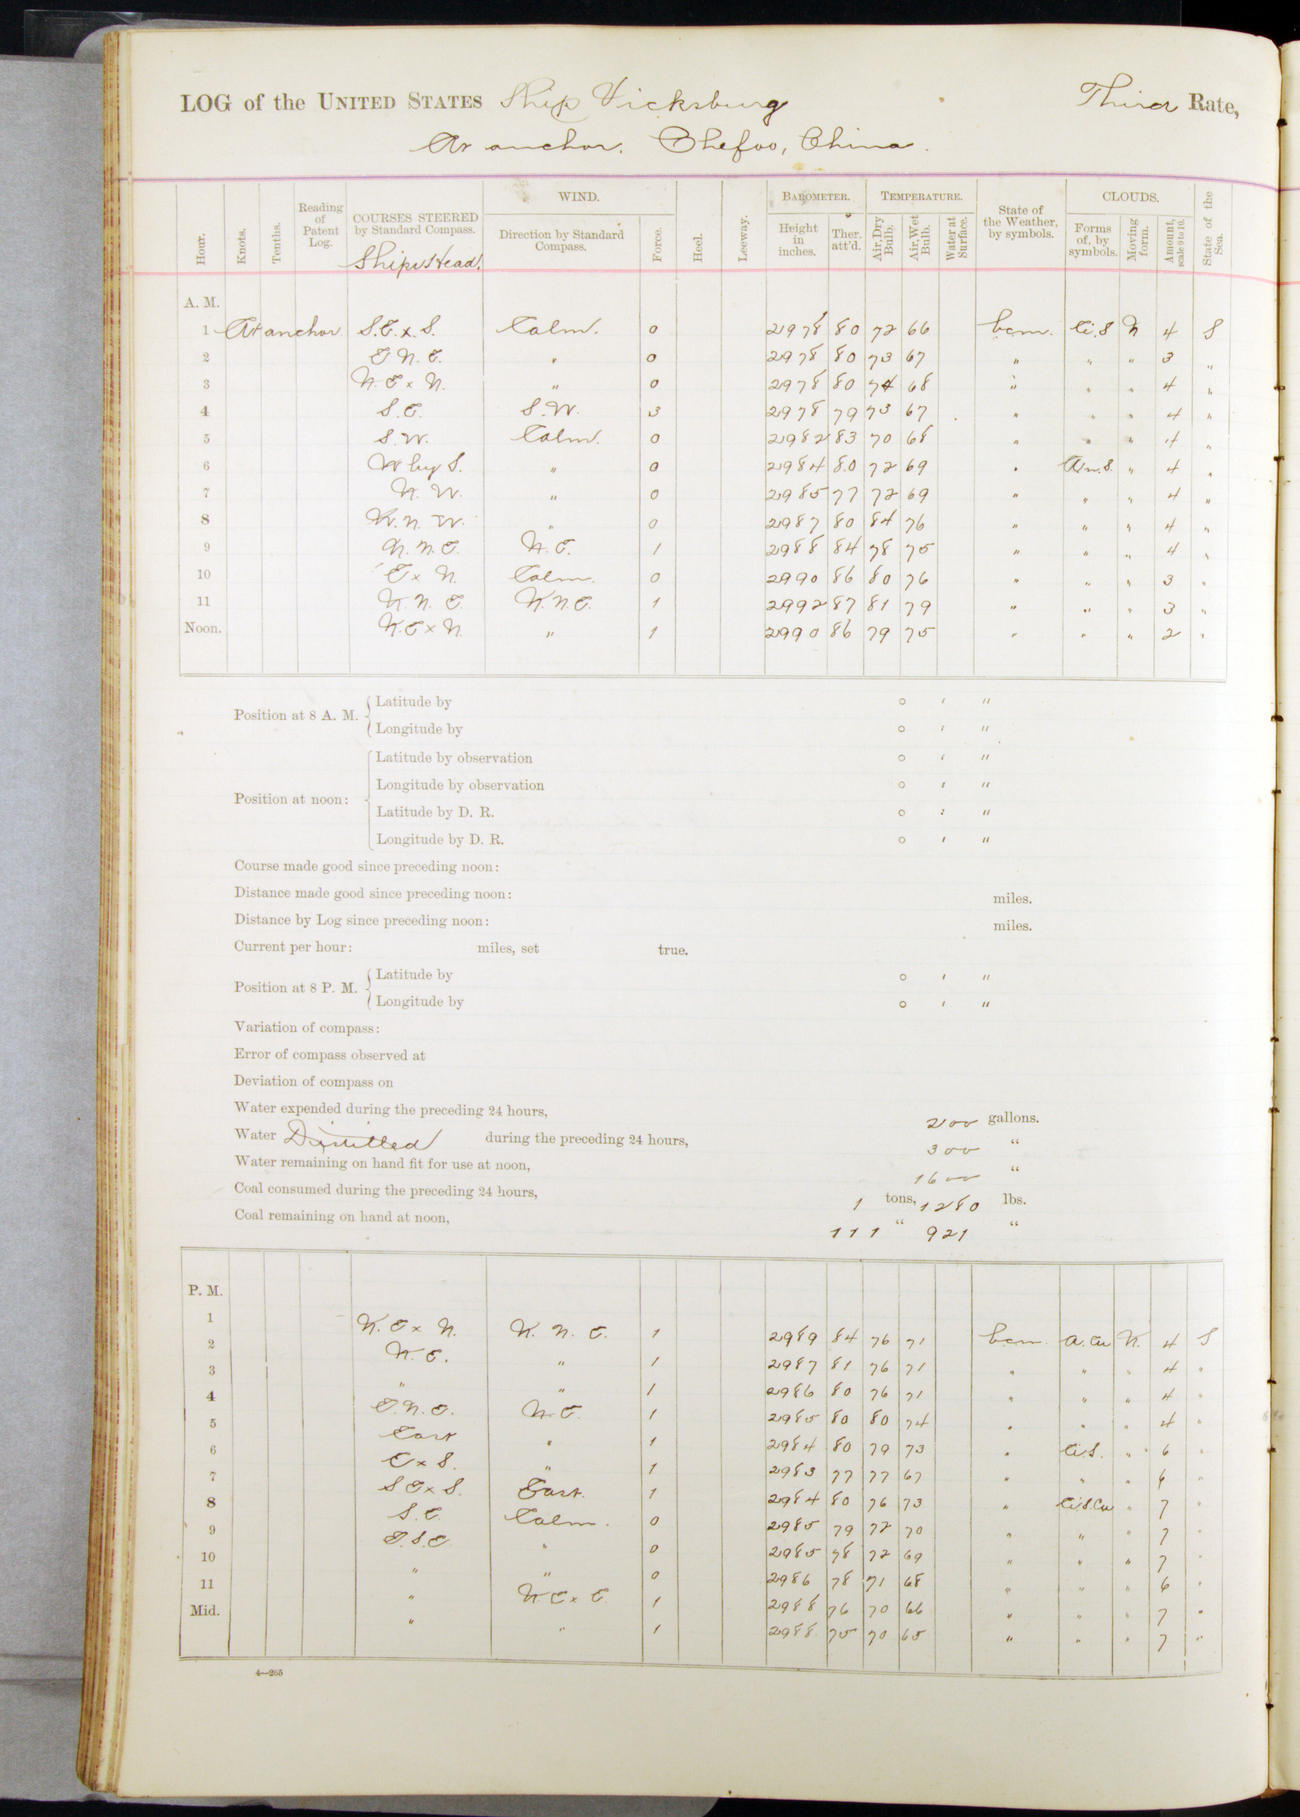 LOG of the UNITED STATES Ship Vicksburg Third Rate,
At anchor. Chefoo, China.
Hour. Knots. Tenths. Reading of Patent Log. COURSES STEERED by Standard Compass. Ship's Head. WIND. Direction by Standard Compass. Force. Heel. Leeway. BAROMETER. Height in inches. Ther. att'd. TEMPERATURE. Air, Dry Bulb. Air, Wet Bulb. Water at Surface. State of the Weather, by symbols. CLOUDS. Forms of, by symbols. Moving form. Amount, scale 0 to 10. State of the Sea.
A. M.
1 At anchor S.E. x S. Calm. 0 2978 80 72 66 bcm. Ci.S N 4 S
2 E N. E. " 0 2978 80 73 67 " " " 3 "
3 N. E x N. " 0 2978 80 74 68 " " " 4 "
4 S. E. S.W. 3 2978 79 73 67 " " " 4 "
5 S. W. Calm. 0 2982 83 70 68 " " " 4 "
6 W by S. " 0 2984 80 72 69 " " 4 "
7 N. W. " 0 2985 77 72 69 " " " 4 "
8 W. N. W. " 0 2987 80 84 76 " " " 4 "
9 N. N. E. N. E. 1 2988 84 78 75 " " " 4 "
10 E x N. Calm. 0 2990 86 80 76 " " " 3 "
11 N. N. E. N.N.E. 1 2992 87 81 79 " " " 3 "
Noon. N. E x N. " 1 2990 86 79 75 " " " 2 "
Position at 8 A. M. Latitude by ° ′ ″
Longitude by ° ′ ″
Position at noon: Latitude by observation ° ′ ″
Longitude by observation ° ′ ″
Latitude by D. R. ° ′ ″
Longitude by D. R. ° ′ ″
Course made good since preceding noon:
Distance made good since preceding noon: miles.
Distance by Log since preceding noon: miles.
Current per hour: miles, set true.
Position at 8 P. M. Latitude by ° ′ ″
Longitude by ° ′ ″
Variation of compass:
Error of compass observed at
Deviation of compass on
Water expended during the preceding 24 hours, 200 gallons.
Water Distilled during the preceding 24 hours, 300 "
Water remaining on hand fit for use at noon, 1600 "
Coal consumed during the preceding 24 hours, 1 tons, 1280 lbs.
Coal remaining on hand at noon, 111 " 921 "
P. M.
1 N. E x N. N. N. E. 1 2989 84 76 71 bcm. A. Cu N. 4 S
2 N. E. " 1 2987 81 76 71 " " " 4 "
3 " " 1 2986 80 76 71 " " " 4 "
4 E. N. E. N. E. 1 2985 80 80 74 " " " 4 "
5 East " 1 2984 80 79 73 " Ci.S. " 6 "
6 E x S. " 1 2983 77 77 67 " " " 6 "
7 S E x S. East. 1 2984 80 76 73 " Ci.S.Cu " 7 "
8 S. E. Calm. 0 2985 79 72 70 " " " 7 "
9 E. S. E. " 0 2985 78 72 69 " " " 7 "
10 " " 0 2986 78 71 68 " " " 6 "
11 " N E x E. 1 2988 76 70 66 " " " 7 "
Mid. " " 1 2988 75 70 65 " " " 7 "
4—265